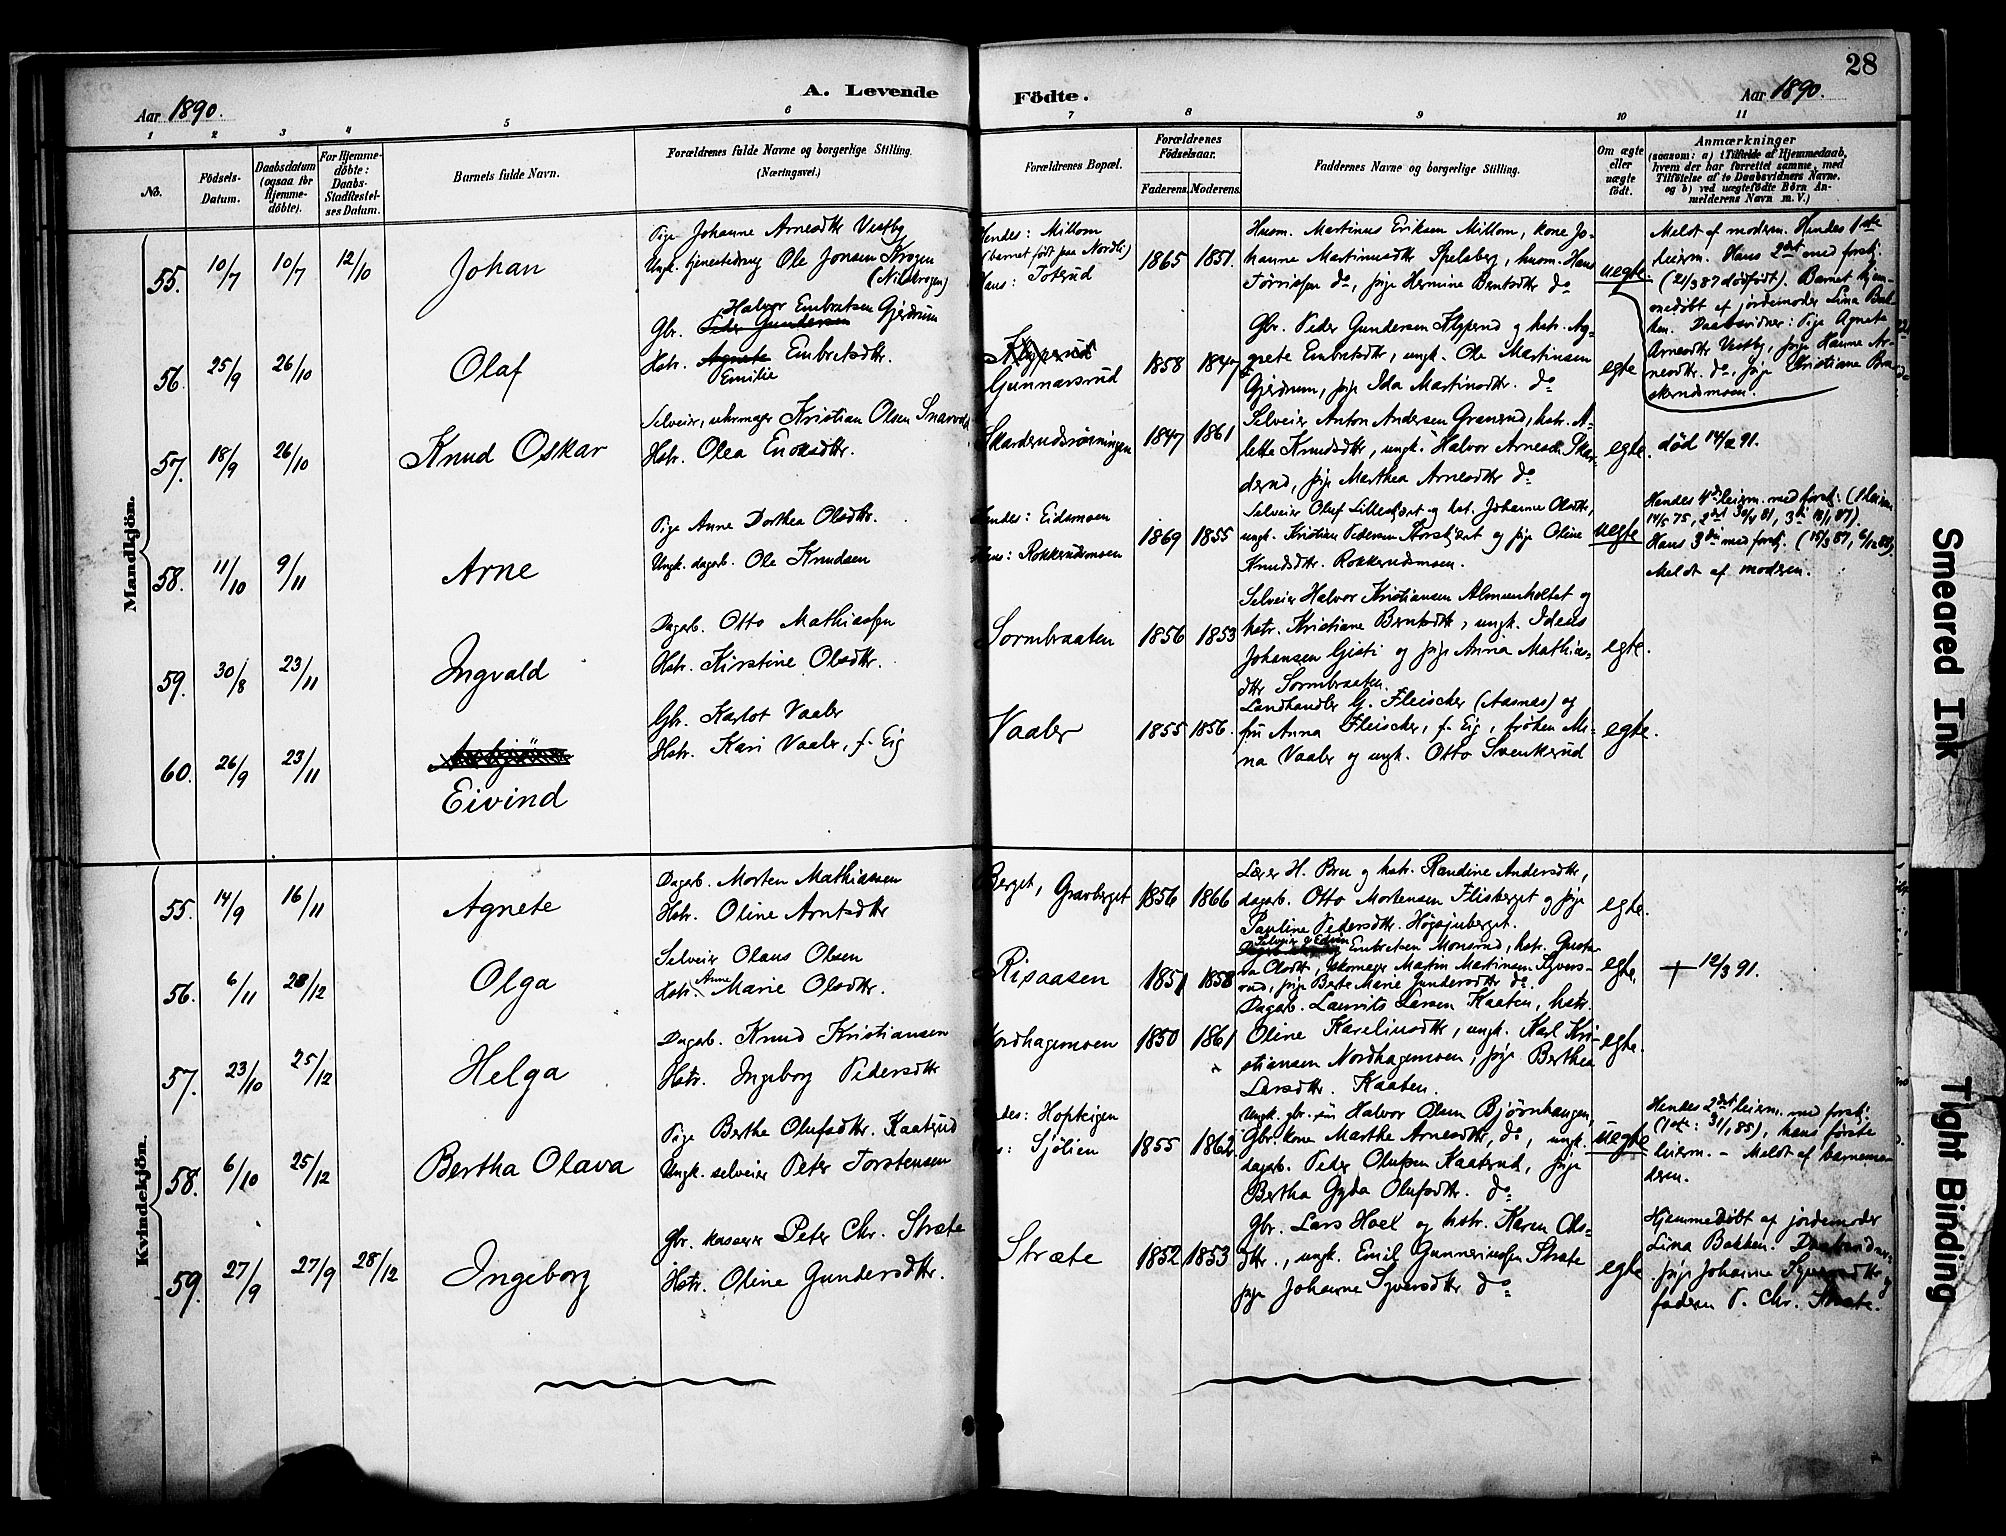 28
A. Levende Födte.
Aar 1890.
Aar 1890.
1 2 3 4 5 6 7 8 9 10 11
No.
Födsels-Datum.
Daabsdatum (ogsaa for Hjemme-döbte).
For Hjemme-döbte: Daabs-Stadfæstel-ses Datum.
Barnets fulde Navn.
Forældrenes fulde Navne og borgerlige Stilling. (Næringsvei.)
Forældrenes Bopæl.
Forældrenes Födselsaar.
Faderens. Moderens.
Faddernes Navne og borgerlige Stilling.
Om ægte eller uægte født.
Anmærkninger
(saasom: a) i Tilfælde af Hjemmedaab, hvem der har forrettet samme, med Tilföielse af to Daabsvidners Navne, og b) ved uægtefödte Börn An-melderens Navn m. V.)
Mandkjön.
55. 10/7 10/7 12/10 Johan
Pige Johanne Arnesdtr Vestby
Ungk. tjenestedreng Ole Jonsen Krogen
(Nilskrogen)
Hendes: Millom
(barnet født paa Nordli)
Hans: Toterud
1865 1851.
Husm. Martinus Eriksen Millom, kone Jo-
hanne Martinusdtr Spelsberg, husm. Hans
Tørrissen do, pige Hermine Berntsdtr do
uegte.
Meldt af modern. Hendes 1ste
leierm. Hans 2det med forskj.
(21/3 87 dødfødt). Barnet hjem-
medøbt af jordemoder Lina Bak-
ken. Daabsvidner: Pige Agnete
Arnesdtr Vestby, pige Hanne Ar-
nesdtr. do, pige Kristiane Bra-
skerudsmoen.
56. 25/9 26/10 Olaf
Halvor Embretsen Gjerdrum
Gbr. Peder Gundersen
Hstr. Agnete Embretsdtr.
Emilie
Klyperud
Gunnarsrud
1858 1847
Gbr. Peder Gundersen Klyperud og hstr. Ag-
nete Embretsdtr, ungk. Ole Martinsen
Gjerdrum, pige Ida Martinsdtr. do
egte
57. 18/9 26/10 Knud Oskar
Selveier, urhmager Kristian Olsen Snarvold
Hstr. Olea Enoksdtr.
Skarderudsrøningen
1847 1861
Selveier Anton Andersen Granerud, hstr. A-
lette Knudsdtr, ungk. Halvor Arnesen Skar-
derud, pige Marthea Arnesdtr do
egte.
død 14/2 91.
58. 11/10 9/11 Arne
Pige Anne Dorthea Olsdtr.
Ungk. dagarb. Ole Knudsen
Hendes: Eidsmoen
Hans: Rokkerudsmoen
1869 1855
Selveier Oluf Lillekjært og hst. Johanne Olsdtr,
ungk. Kristian Pedersen Storkjært og pige Oline
Knudsdtr. Rokkerudsmoen.
uegte
Hendes 4de leierm. med forskj. (1 leierm
14/5 75, 2det 30/4 81, 3die 18/1 87).
Hans 3die med forskj. (15/3 87, 6/12 88).
Meldt af modern.
59. 30/8 23/11 Ingvald
Dagarb. Otto Mathiassen
Hstr. Kirstine Olsdtr.
Sormbraaten
1856 1853
Selveier Halvor Kristiansen Almenholtet og
hstr. Kristiane Berntsdtr, ungk. Ideus
Johansen Gisti og pige Anna Mathias-
dtr Sormbraaten.
egte.
60. 26/9 23/11
Eivind
Gbr. Karlot Vaaler
Hstr. Kari Vaaler, f. Eig
Vaaler
1855 1856.
Landhandler G. Fleischer (Aasnæs) og
fru Anna Fleischer, f. Eig, frøken Mi-
na Vaaler og ungk. Otto Svenkerud
egte.
Kvindekjön.
55. 14/9 16/11 Agnete
Dagarb. Morten Mathiassen
Hstr. Oline Arntsdtr
Berget, Gravberget
1856 1866
Lærer H. Bru og hstr. Randine Andersdtr,
dagarb. Otto Mortensen Flisberget og pige
Pauline Pedersdtr. Høgsjøberget.
egte.
56. 6/11 28/12 Olga
Selveier Olaus Olsen
Hstr. Anne Marie Olsdtr.
Risaasen
1851 1858
Selveier Edvin Embretsen Monsrud, hstr. Gusta-
va Olsdtr, skomager Martin Martinsen Syvers-
rud, pige Berte Marie Gundersdtr do.
egte.
+ 12/3 91.
57. 23/10 25/12 Helga
Dagarb. Knud Kristiansen
Hstr. Ingeborg Pedersdtr
Nordhagemoen
1850 1861
Dagarb. Laurits Larsen Kaaten, hstr.
Oline Karelinsdtr, ungk. Karl Kri-
stiansen Nordhagemoen, pige Berthea
Larsdtr. Kaaten.
egte.
58. 6/10 25/12 Bertha Olava
Pige Berthe Olufsdtr. Kaaterud
Ungk. selveier Peter Torstensen
Hopkigen
Sjölien
1855 1862
Ungk. gbr. sön Halvor Olsen Bjørnhaugen,
Gbr.kone Marthe Arnesdtr, do, ungk.
dagarb. Peder Olufsen Kaaterud, pige
Bertha Gyda Olufsdtr. do
uegte
Hendes 2det leierm. med forskj.
(1ste: 31/1 85), hans første
leierm. - Meldt af barnemo-
deren.
59. 27/9 27/9 28/12 Ingeborg
Gbr. kasserer Peter Chr. Stræte
Hstr. Oline Gundersdtr.
Stræte
1852 1853
Gbr. Lars Hoel og hstr. Karen Ols-
dtr., ungk. Emil Gunneriussen Stræte
pige Johanne Syversdtr do
egte
Hjemmedøbt af jordemoder
Lina Bakken. Daabsvidner:
pige Johanne Syversdtr og
faderen P. Chr. Stræte.
Smeared Ink
Tight Binding